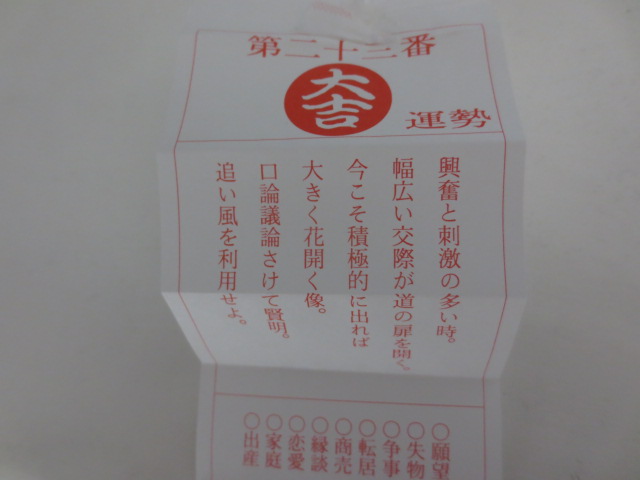 第二十三番
大吉
運勢
興奮と刺激の多い時。
幅広い交際が道の扉を開く。
今こそ積極的に出れば
大きく花開く像。
口論議論さけて賢明。
追い風を利用せよ。
○願望
○失物
○争事
○転居
○商売
○縁談
○恋愛
○家庭
○出産